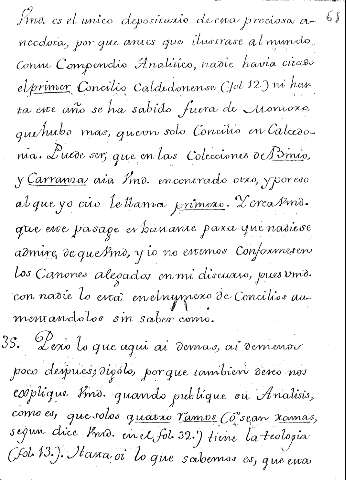 68
Vmd. es el unico depositario de esa preciosa a-
necdota, por que antes que ilustrase al mundo
con su Compendio Analitico, nadie havia citado
el primer Concilio Calcedonense (fol. 12.) ni has-
ta este año se ha sabido fuera de
que hubo mas, que un solo Concilio en Calcedo-
nia. Puede ser, que en las Colecciones de Binio,
y Carranza aia Vmd. encontrado otro, y por eso
al que yo cito le llama primero. Y crea Vmd.
que este pasage es bastante para que nadie se
admire, de que Vmd, y io no estemos conformes en
los Canones alegados en mi discurso, pues Vmd.
con nadie lo está en el numero de Concilios au-
mentandolos sin saber como.
35. Pero lo que aqui ai demas, ai de menos
poco despues; digolo, por que tambien deseo nos
explique Vmd. quando publique su Analisis,
como es, que solos quatro ramos (ó sean ramas,
segun dice Vmd. en el fol. 32.) tiene la teologia
(fol. 13.). Hasta oi lo que sabemos es, que esta